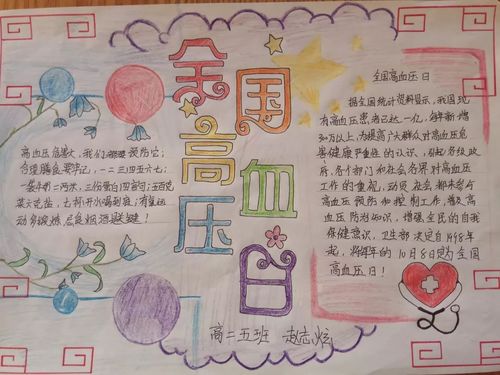 全国
高血
压日
高血压危害大，我们都要预防它；
合理膳食要牢记，一二三四五六七：
一袋牛奶二两米，三份蛋白四言句；五百克
菜六克盐，七杯开水喝到底；有氧运
动多锻炼，忌息烟酒最关键！
全国高血压日
据全国统计资料显示，我国现
有高血压患者已达一亿，每年新增
300万以上，为提高广大群众对高血压危
害健康严重性的认识，引起各级政
府、各个部门和社会各界对高血压
工作的重视，动员社会都来参与
高血压预防和控制工作，普及高
血压防治知识，增强全民的自我
保健意识，卫生部决定自1998年
起，将每年的10月8日定为全国
高血压日！
高二五班 赵志炫